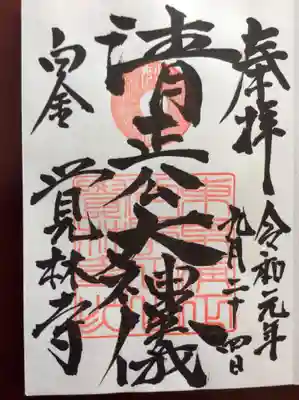 奉拝
令和元年
九月二十四日
清正公大神儀
白金
覚林寺